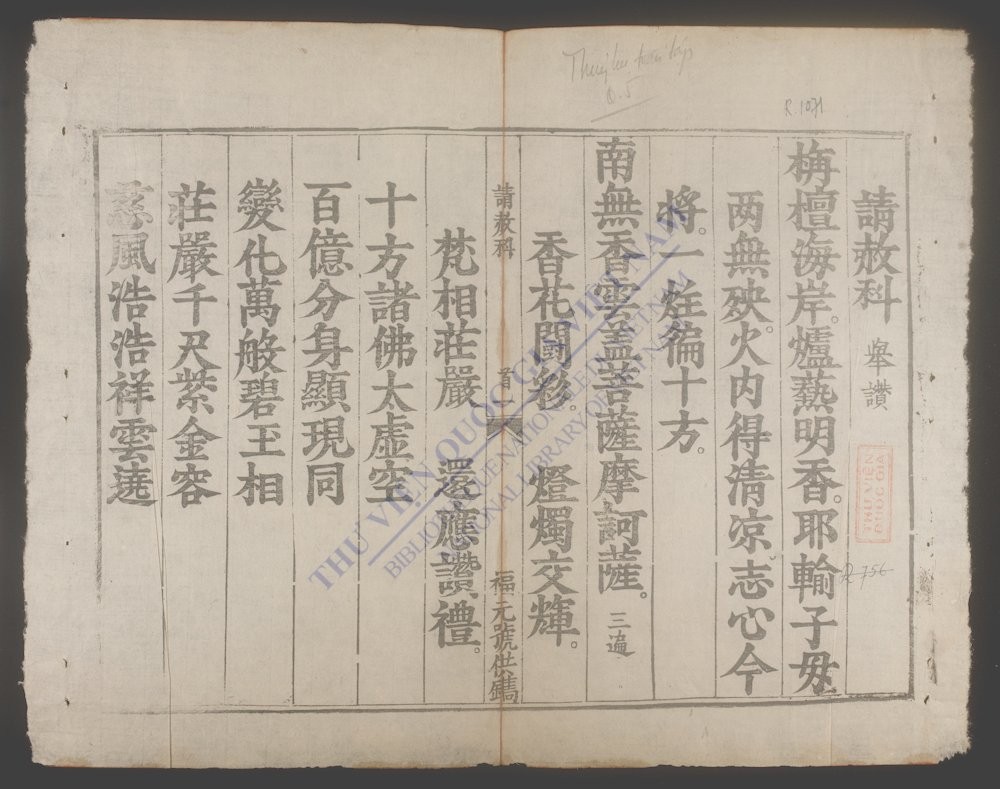 請赦科 舉讚
栴檀海岸。爐爇明香。耶輸子母
两無殃。火内得清凉志心今
將。一炷徧十方。
南無香雲盖菩薩摩訶薩。三遍
香花闘彩。燈燭交輝。
梵相莊嚴 還應讚禮。
請赦科 首 福元號供鐫
十方諸佛太虛空
百億分身顯現同
變化萬般碧玉相
莊嚴千尺紫金容
慈風浩浩祥雲遶
R.1071
R.756
THƯ VIỆN QUỐC GIA
THƯ VIỆN QUỐC GIA VIỆT NAM
NATIONAL LIBRARY OF VIETNAM